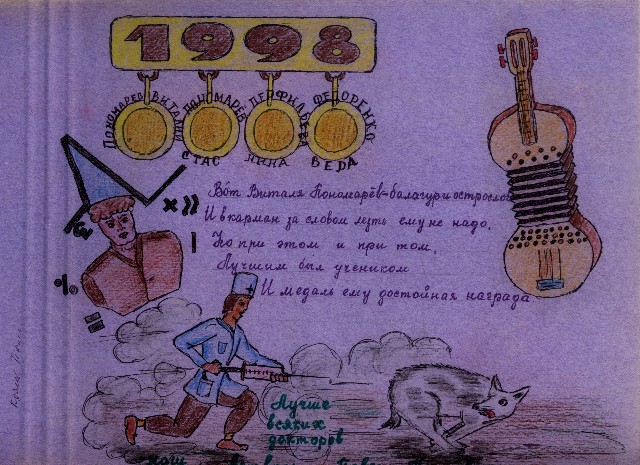 1998
ПОНОМАРЕВ ВИТАЛИЙ
ПОНОМАРЁВ СТАС
ПЕРФИЛЬЕВА НИНА
ФЕДОРЕНКО ВЕРА
Вот Виталя Пономарёв-балагур и острослов
И в карман за словом лезть ему не надо,
Но при этом и при том,
Лучшим был учеником
И медаль ему достойная награда
%
=
Лучше
всяких
докторов